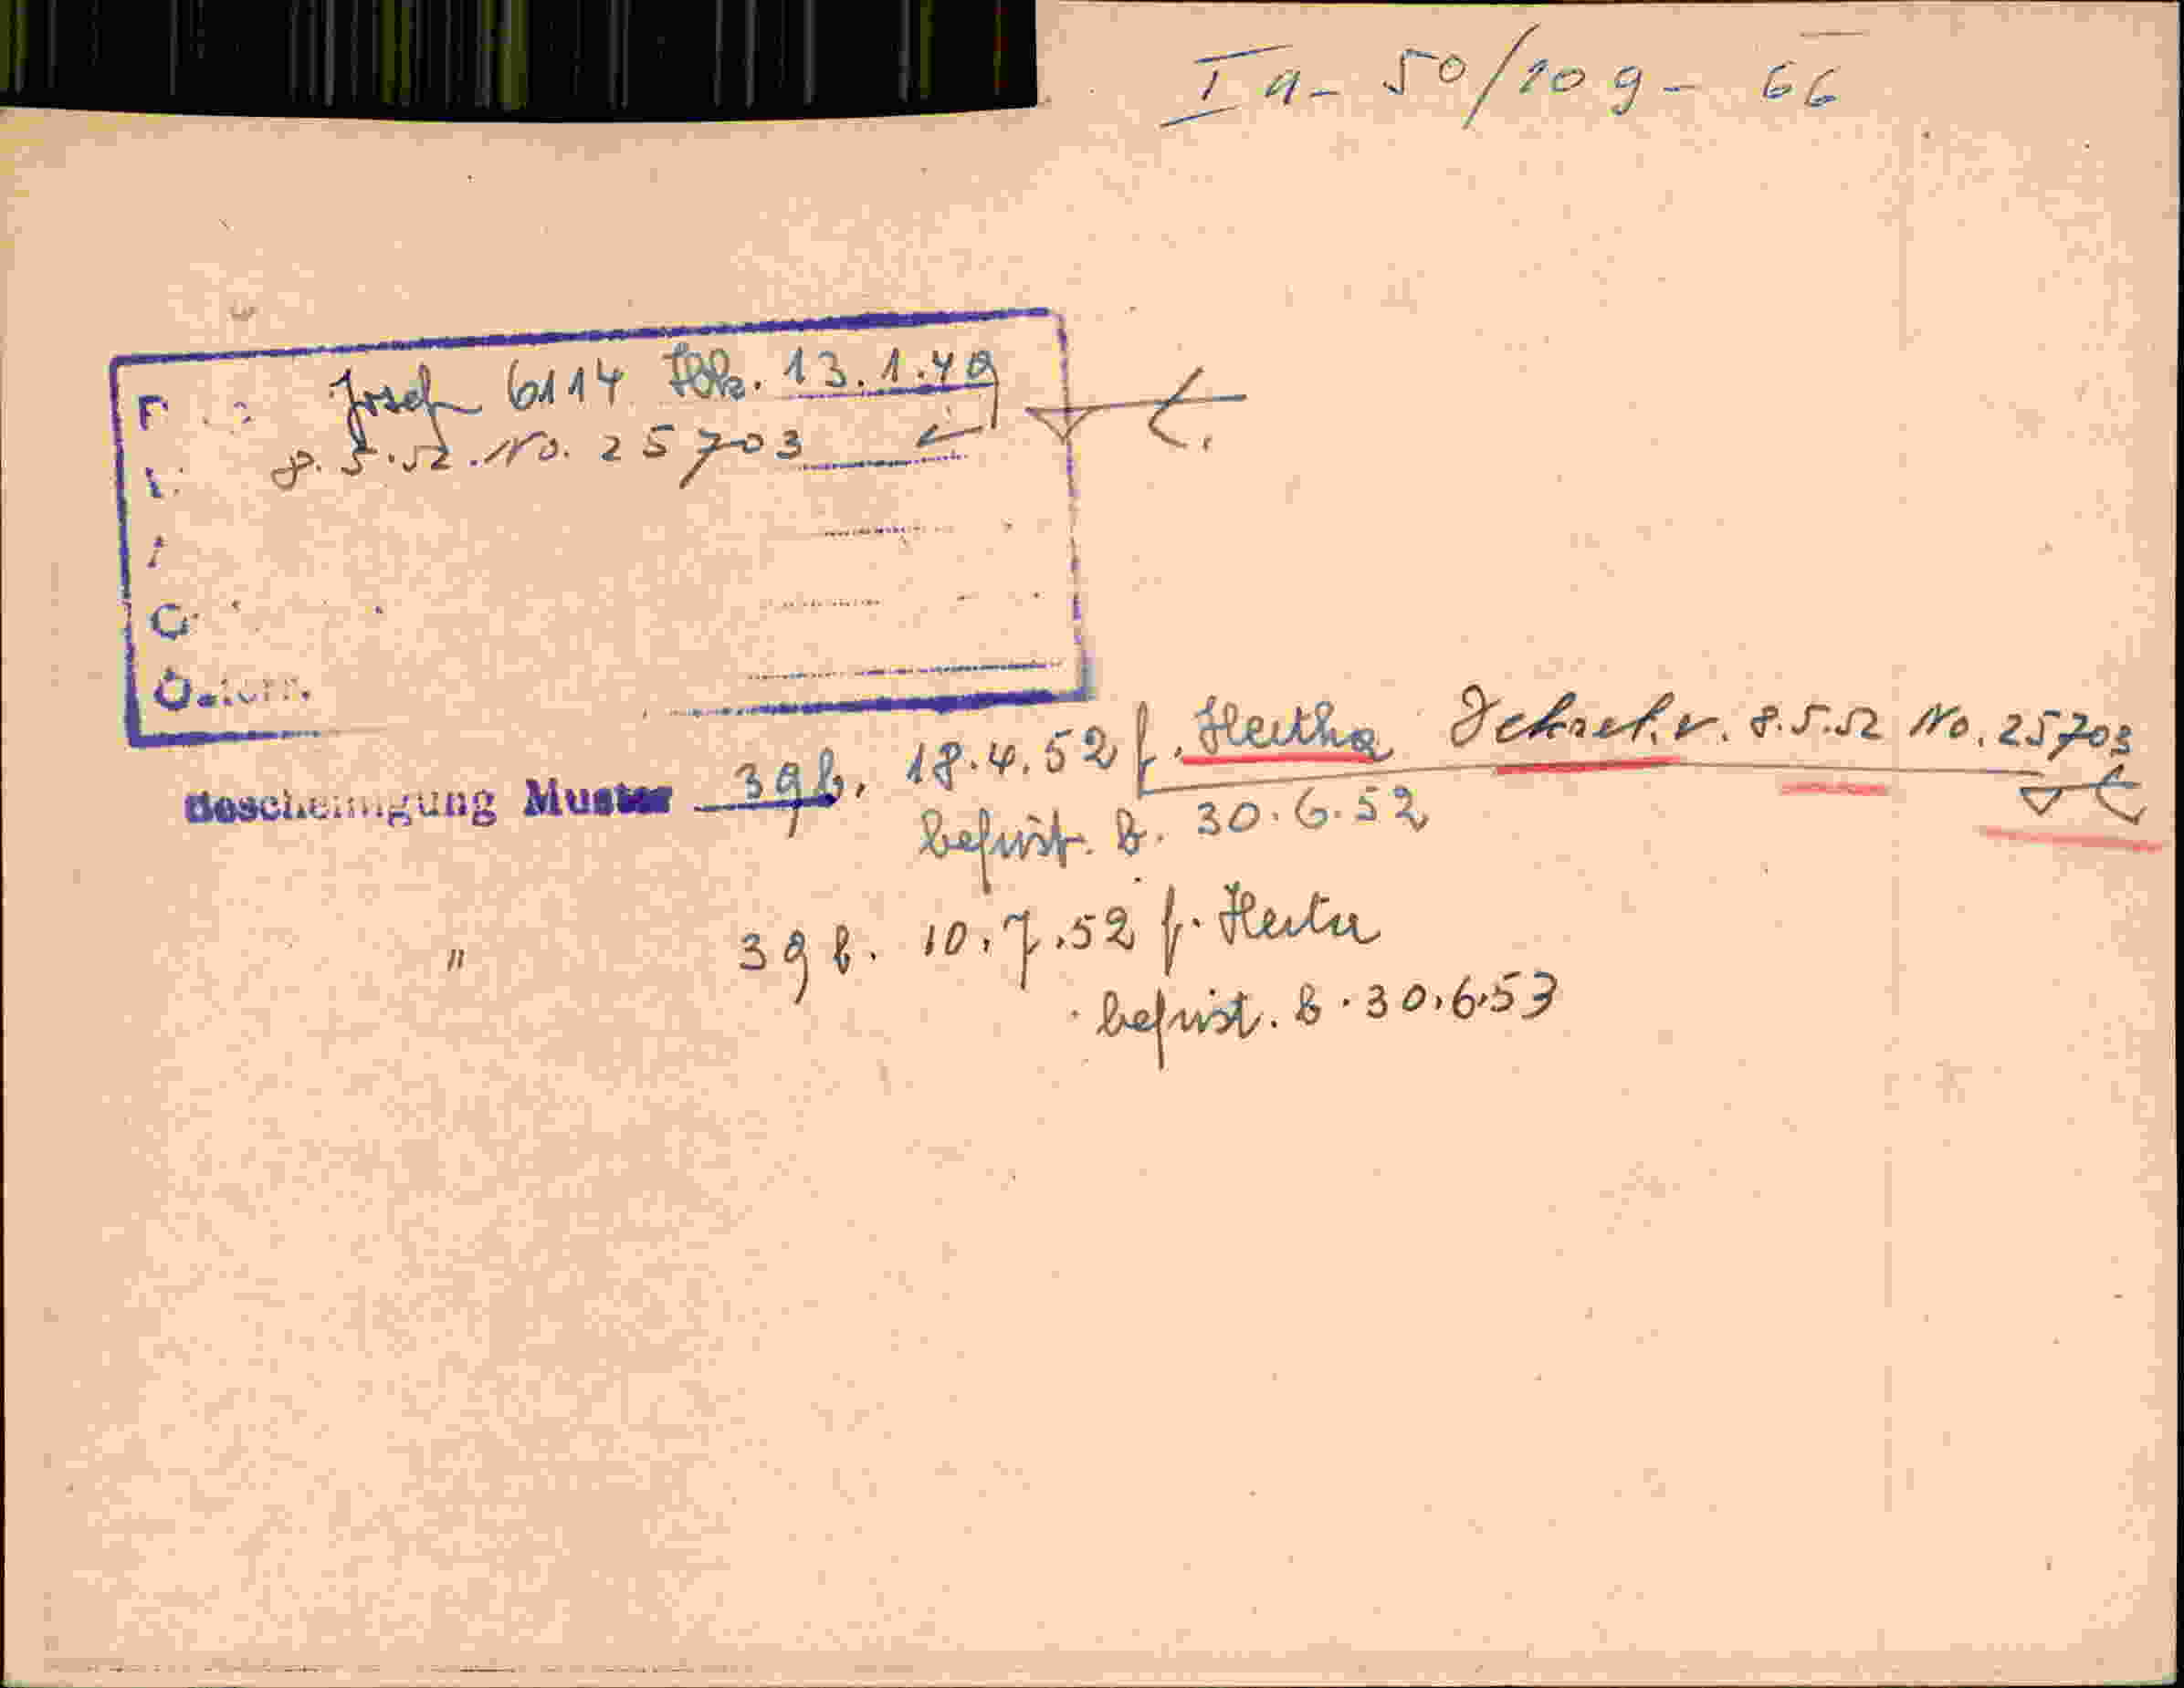 I a - 50/10 g - 66
Josef 6114 13.1.49
8.5.52. No. 25703
Bescheinigung Muster 39b. 18.4.52 f. Hertha Dekret v. 8.5.52 No. 25703
befrist. b. 30.6.52
" 39b. 10.7.52 f. Herta
befrist. b. 30.6.53